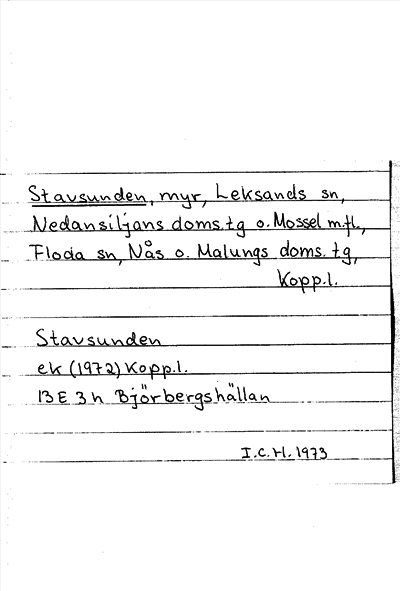 Stavsunden, myr, Leksands sn,
Nedansiljans doms.tg o. Mossel m.fl.,
Floda sn, Nås o. Malungs doms.tg,
Kopp.l.
Stavsunden
ek (1972) Kopp.l.
13 E 3 h Björbergshällan
I.C.H. 1973